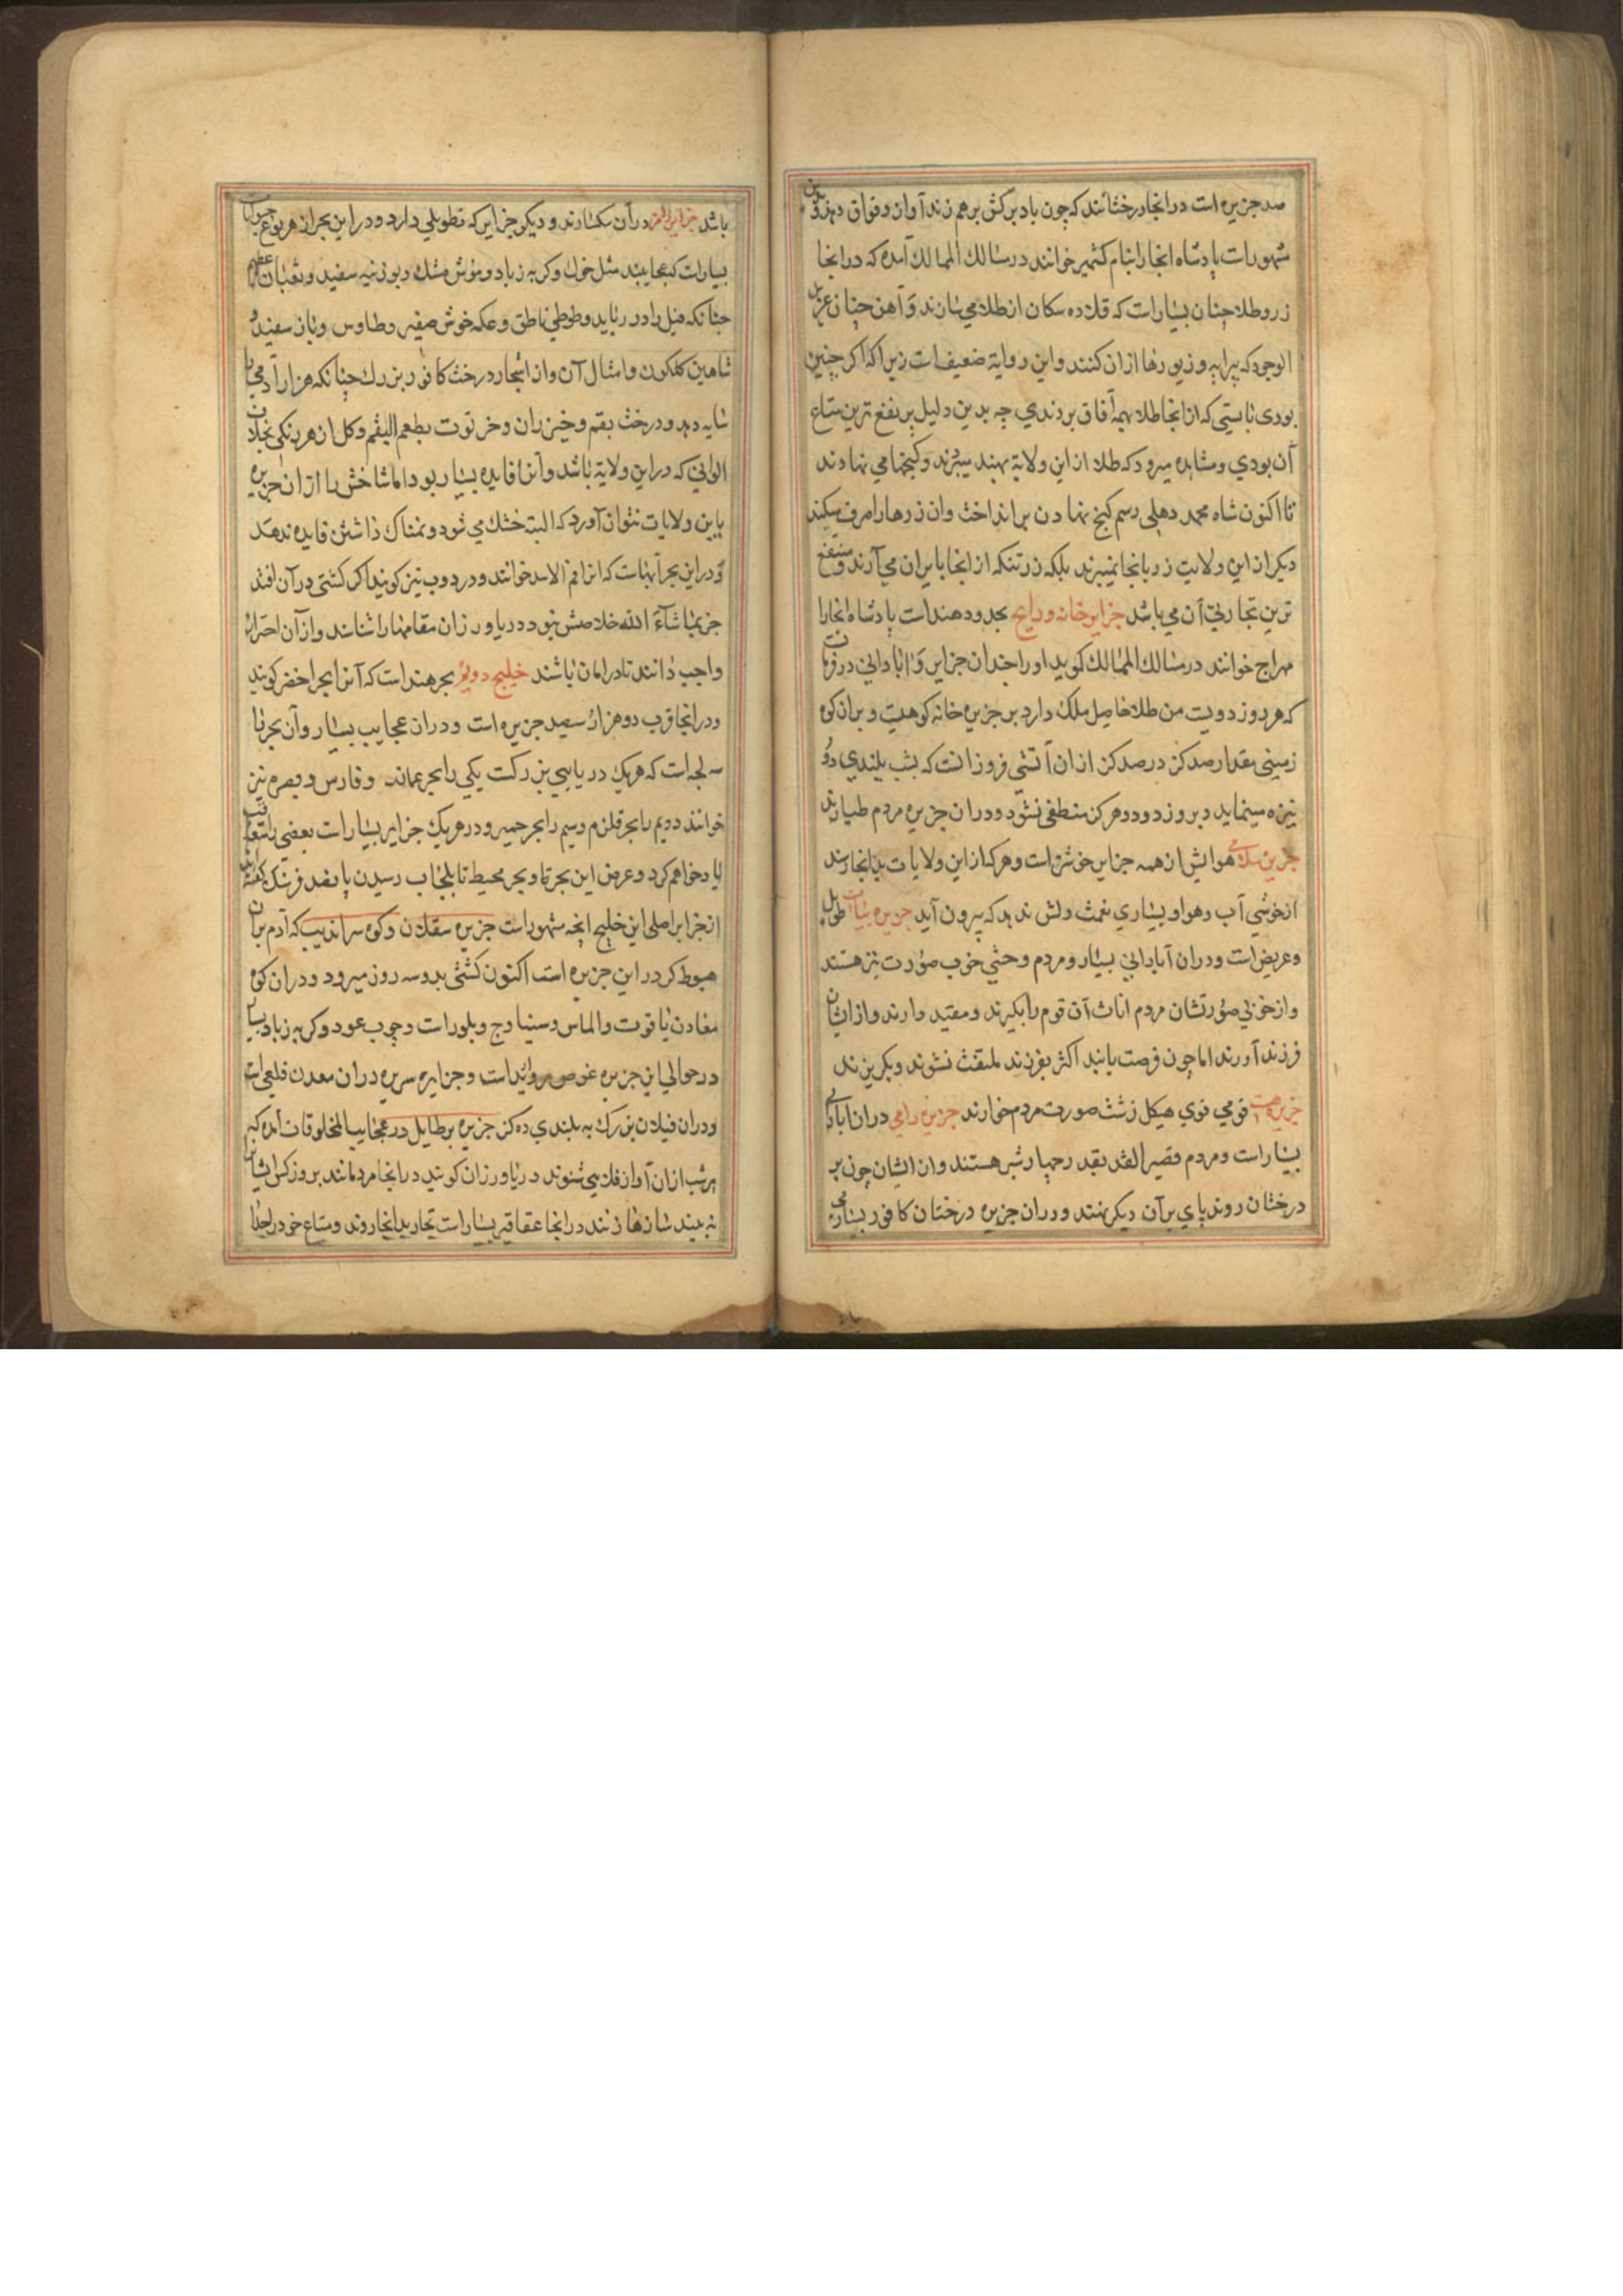 صد جزیره است در انجا درختانند که چون باد برگش بر هم زند آواز وقواق دهد و بدین
مشهور است پادشاه انجا را بنام کشمیر خوانند در مسالك الممالك آمده که در انجا
زر و طلا چنان بسیار است که قلاده سکان از طلا می سازند و آهن چنان عزیز
الوجود که پیرایه و زیورها از ان کنند و این روایة ضعیف است زیرا که اکر چنین
بودی بایستی که از انجا طلا بهمه آفاق بردندی چه بدین دلیل پر نفع ترین متاع
آن بودی و مشاهده میرود که طلا از این ولایة بهند میبرند و کنجها می نهادند
تا اکنون شاه محمد دهلی رسم کنج نهادن بر انداخت و ان زرها را صرف میکند
دیکر از این ولایت زر بانجا نمیبرند بلکه زر تنکه از انجا بایران می آرند و منتفع
ترین تجارتی آن می باشد جزایر خانه و رایج بحدود هند است پادشاه انجا را
مهراج خوانند در مسالك الممالك کوید او را چندان جزایر و آبادانی در فرمانست
که هر روز دویست من طلا حاصل ملك دارد بر جزیره خانه کوهیست و بران کوه
زمینی مقدار صد کز در صد کز از ان آتشی فروزانست که بشب بلندی دو
نیزه مینماید و بروز دود و هرکز منطفی نشود و در ان جزیره مردم طیارند
جزیره سلامی هوایش از همه جزایر خوشتر است و هر که از این ولایات بدانجا رسد
از خوشی آب و هوا و بسیاری نعمت دلش ندهد که بیرون آید جزیره بنیان طویل
و عریض است و در ان آبادانی بسیار و مردم وحشی خوب صورت نیز هستند
و از خوبی صورتشان مردم اناث آن قوم را بکیرند و مقید دارند و از ایشان
فرزند آورند اما چون فرصت یابند اکثر بفرزند ملتفت نشوند و بکریزند
جزیره قومی قوی هیکل زشت صورت مردم خوارند جزیره رامی در ان آبادانی
بسیار است و مردم قصیر القد بقد رچهار شبر هستند و ان ایشان چون بر
درختان روند پای بر آن دیکر نهند و در ان جزیره درختان کافور بسیار می
باشد در آن سکسارند و دیکر جزایر که تطویلی دارد و در این بحر از هر نوع حیوانات
بسیار است که عجایبند مثل خوك و کربه زباد و موش مشك و بوزنیه سفید و ثعبان عظیم
چنانکه فیل را در رباید و طوطی ناطق و عکه خوش صفیر و طاوس و باز سفید و
شاهین کلکون و امثال آن و از اشجار درخت کافور بزرك چنانکه هزار آدمی را
سایه دهد و درخت بقم و خیزران و خر توت بطعم الیقم و کل از هر رنکی بخلاف
الوانی که در این ولایة باشد و آنرا فایده بسیار بود اما شاخش را از ان جزیره
باین ولایات نتوان آورد که البته خشك می شود و نمناك داشتن فایده ندهد
و در این بحر آبهاست که انرا فم الاسد خوانند و دردوب نیز کویند اکر کشتی در آن افتد
جز بما شآء الله خلاصش نبود و دریا ورزان مقامها را شناسند و از آن احتراز
واجب دانند تا در امان باشند خلیج دویم بحر هند است که آنرا بحر اخضر کویند
و در انجا قرب دو هزار سیصد جزیره است و در ان عجایب بسیار و آن بحر با
سه لجه است که هریك دریایی بزرکست یکی را بحر عماند و فارس و بصره نیز
خوانند دویم را بحر قلزم و سیم را بحر حمیر و در هریك جزایر بسیار است بعضی را
یاد خواهم کرد و عرض این بحر تا و بحر محیط تا بلنجاب رسیدن پانصد فرسنك کفته اند
از جزایر اصلی این خلیج انچه مشهور است جزیره سقلان و کوه سراندیب که آدم بران
هبوط کرد در این جزیره است اکنون کشتی بدو سه روز میرود و در ان کوه
معادن یاقوت و الماس و سنباده و بلور است و چوب عود و کربه زباد بسیار
در حوالی این جزیره غوص مروارید است و جزایر سریره در ان معدن قلعی است
و در ان فیلان بزرك به بلندی ده کز جزیره برطایل در عجایب المخلوقات آمده که
هر شب از ان آواز می شنوند دریا ورزان کویند در انجا مردمانند بروز کس ایشانرا
نه بیند سازها زنند در انجا عقاقیر بسیار است تجار بدانجا روند و متاع خود را جدا